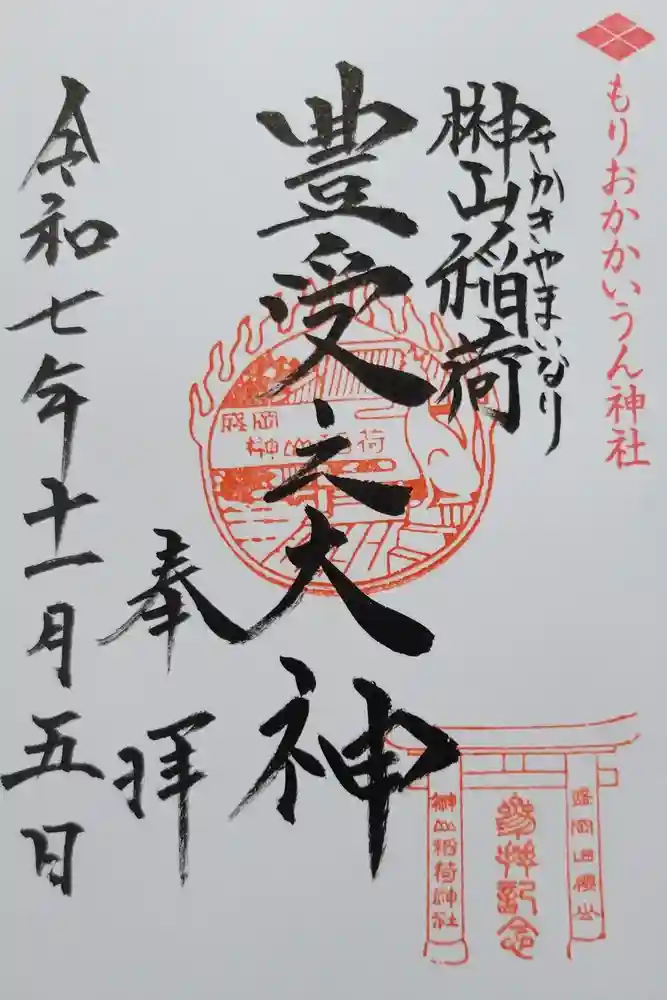 もりおかかいうん神社
さかきやまいなり
榊山稲荷
豊受之大神
奉拝
令和七年十一月五日
盛岡
榊山稲荷
参拝記念
榊山稲荷神社